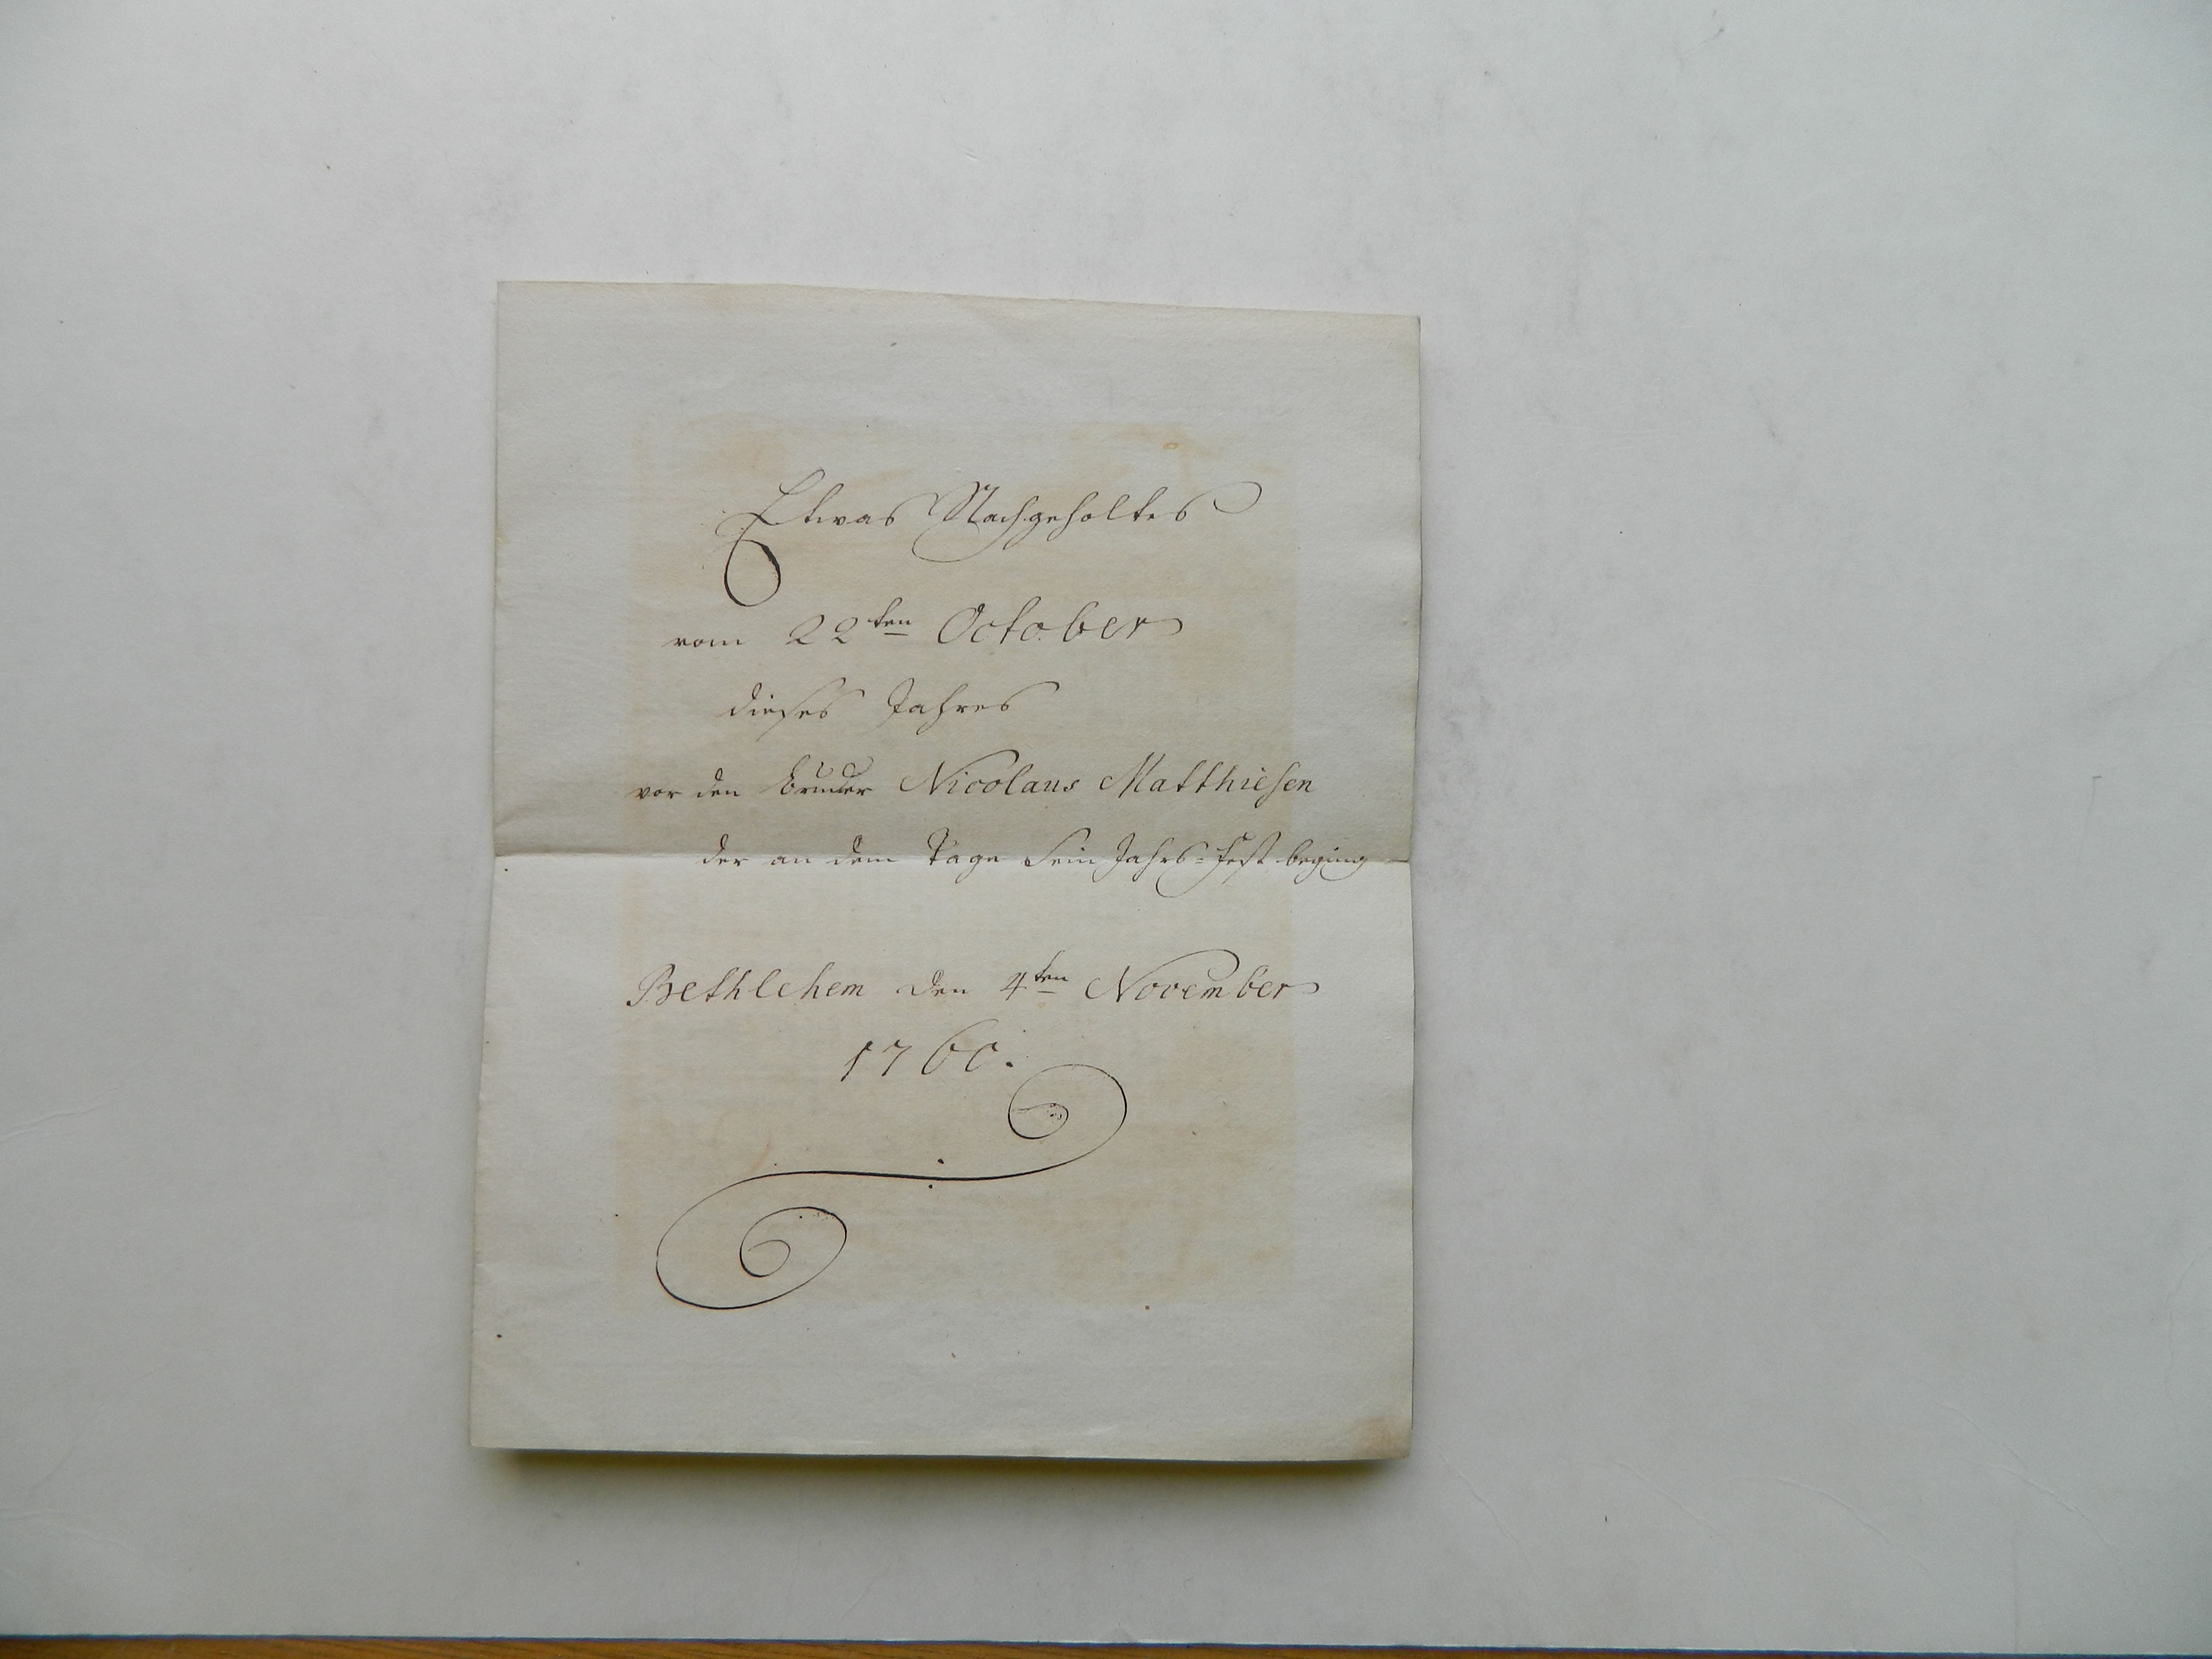 Etwas Nachgeholtes
vom 22ten October
dieses Jahres
vor den bruder Nicolaus Matthiesen
der an dem Tage sein Jahrs=Fest beging
Bethlehem den 4ten November
1760.